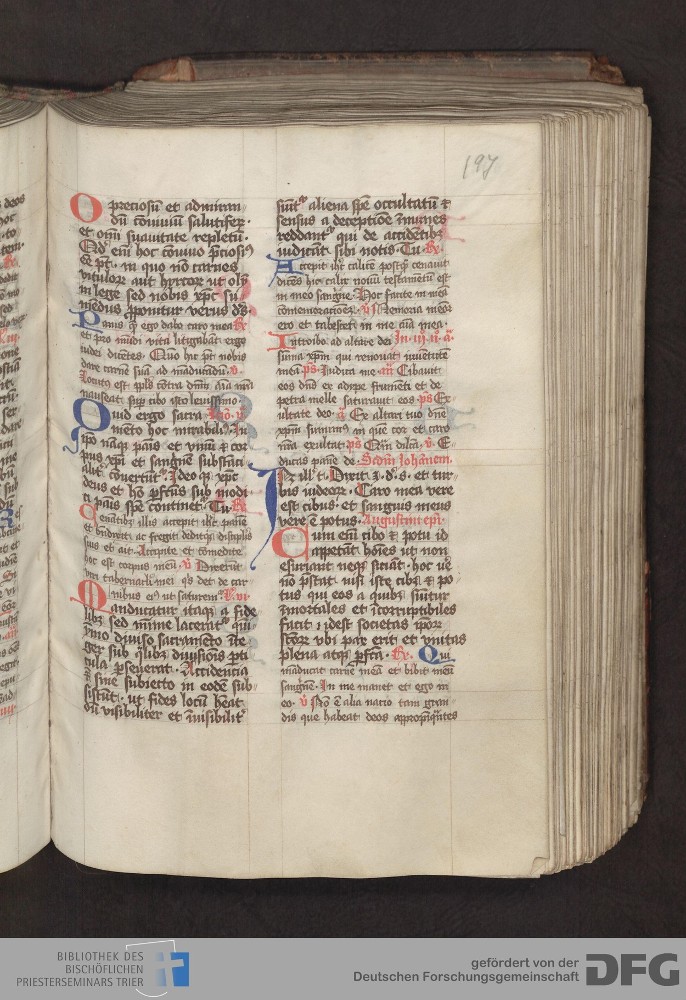 197
O preciosū et admiran-
dū cōuiuiū salutifeꝝ·
et omī suauitate repletū·
Qd' em̄ hoc cōuiuo p̄ciosiꝰ
ēē pt̄· in quo nō carnes
vituloꝝ aut hyrcoꝝ ut olī
in lege sed nobis xp̄c su-
medus ꝓponitur verus dꝰ
Panis qͥ ego dabo caro mea
et pro mūdi vita litigabāt ergo
iudei dicētes· Quo hic pt̄ nobis
dare carnē suā ad māducādū· v̄·
Locutꝰ est ppl̄s cōtra dn̄m aīa nr̄a
nauseat suꝑ cibo isto leuissimo·
Quid ergo sacra
mēto hoc mirabiliꝰ· In
ip̄o nāqꝫ panis et vinū ī cor
pus xp̄i et sanguē substāci
alit̓ cōuertūt̓· Ideo qꝫ xp̄c
deus et hō ꝑfctūs sub modi
ci panis spē continet̓· Tu· R̄
Cenātibꝫ illis accepit ihc̄ panē
et bn̄dixit ac fregit deditqꝫ discipl̄is
suis et ait· Accipite et comedite
hoc est corpus meū· v̄ Dixerūt
viri tabernacl̓i mei qͥs det de car-
nibus eiꝰ ut saturem̓·
Manducatur itaqꝫ a fide
libꝫ sed mīme laceratͬ qui-
ymo diuiso sacramēto īte
ger sub qͣlibꝫ diuisiōis ꝑti
cula ꝑseuerat· Accidencia
em̄ sine subiecto in eodē sub-
sistūt· ut fides locū h̄eat
dū visibiliter et īuisibilit̓
sūitͬ aliena spē occultatū et
sensus a deceptiōe īmunes
reddantͬ qui de accidētibꝫ
iudicāt sibi notis· Tu· R̄
Accepit ihc̄ calicē postqͣꝫ cenauit
dicēs hic calix nouū testamētū est
in meo sanguē· Hoc facite in meā
cōmemoracioēꝫ· v̄ Memoria meor
ero et tabescet in me aīa mea·
Introibo ad altare dei
sumā xpm̄ qui renouat iuuētutē
meā· ps̄· Judica me· Cibauit
eos dn̄s ex adipe frumēti et de
petra melle saturauit eos· ps̄ Ex
ultate deo· Ex altari tuo dn̄e
xpm̄ sumimꝰ in quē cor et caro
nr̄a exultat· ps̄ Qm̄ dilc̄a· v̄· E-
ducas panē de· Scdm̄ Johānem·
In ill̓ t̄· Dixit· I· d̓· s̓· et tur-
bis iudeoꝝ· Caro mea vere
est cibus et sanguis meus
vere ē potus· Augustini epi·
Cum em̄ cibo et potu id
appetāt hoīes ut non
esuriant neqꝫ siciāt· hoc ve
ro nō p̄stat nisi iste cibꝰ et po
tus qui eos a quibꝫ sūitur
īmortales et īcorruptibiles
facit· idest societas ip̄or
sc̄torꝝ vbi pax erit et vnitas
plena atqꝫ ꝑfcā· R̄· Qui
māducat carnē meā et bibit meū
sanguēꝫ· In me manet et ego in
eo· v̄ Nō ē alia nacio tam gran-
dis que habeat deos appropīqͣtes
BIBLIOTHEK DES
BISCHÖFLICHEN
PRIESTERSEMINARS TRIER
gefördert von der
Deutschen Forschungsgemeinschaft DFG